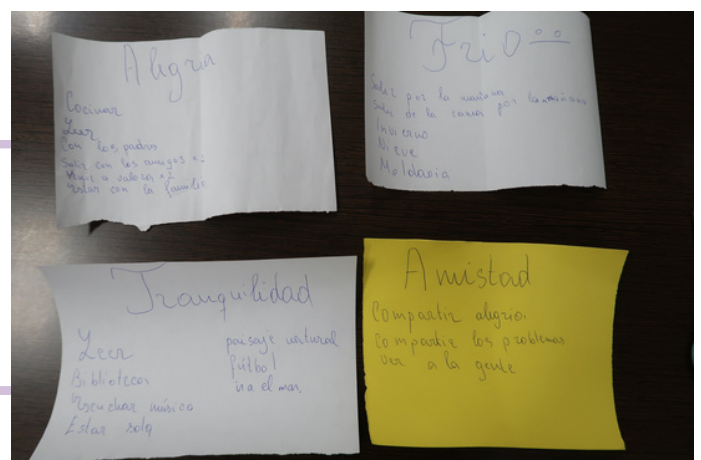 Alegria
Cocinar
Leer
Con los padres
Salir con los amigos x2
a valores x2
Estar con la familia
Frio
Salir por la mañana
Salir de la cama por la mañana
Invierno
Nieve
Moldavia
Tranquilidad
Leer
Bibliotecas
Escuchar música
Estar sola
paisaje natural
fútbol
ir a el mar.
Amistad
Compartir alegrias
Compartir los problemas
Ver a la gente